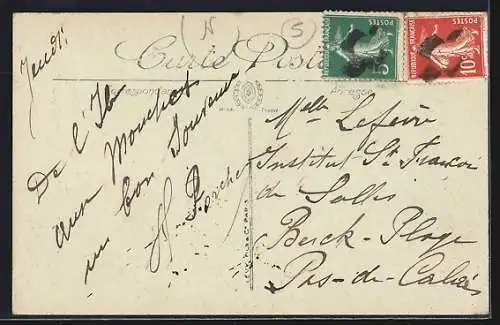 Jeudi
N
S
Carte Postale
Correspondance
Adresse
POSTES
RÉPUBLIQUE FRANÇAISE
5
POSTES
RÉPUBLIQUE FRANÇAISE
10
De l'Ile
aux Mouches
un bon Souvenir
Melle Lefèvre
Institut St François
de Salles
Berck-Plage
Pas-de-Calais